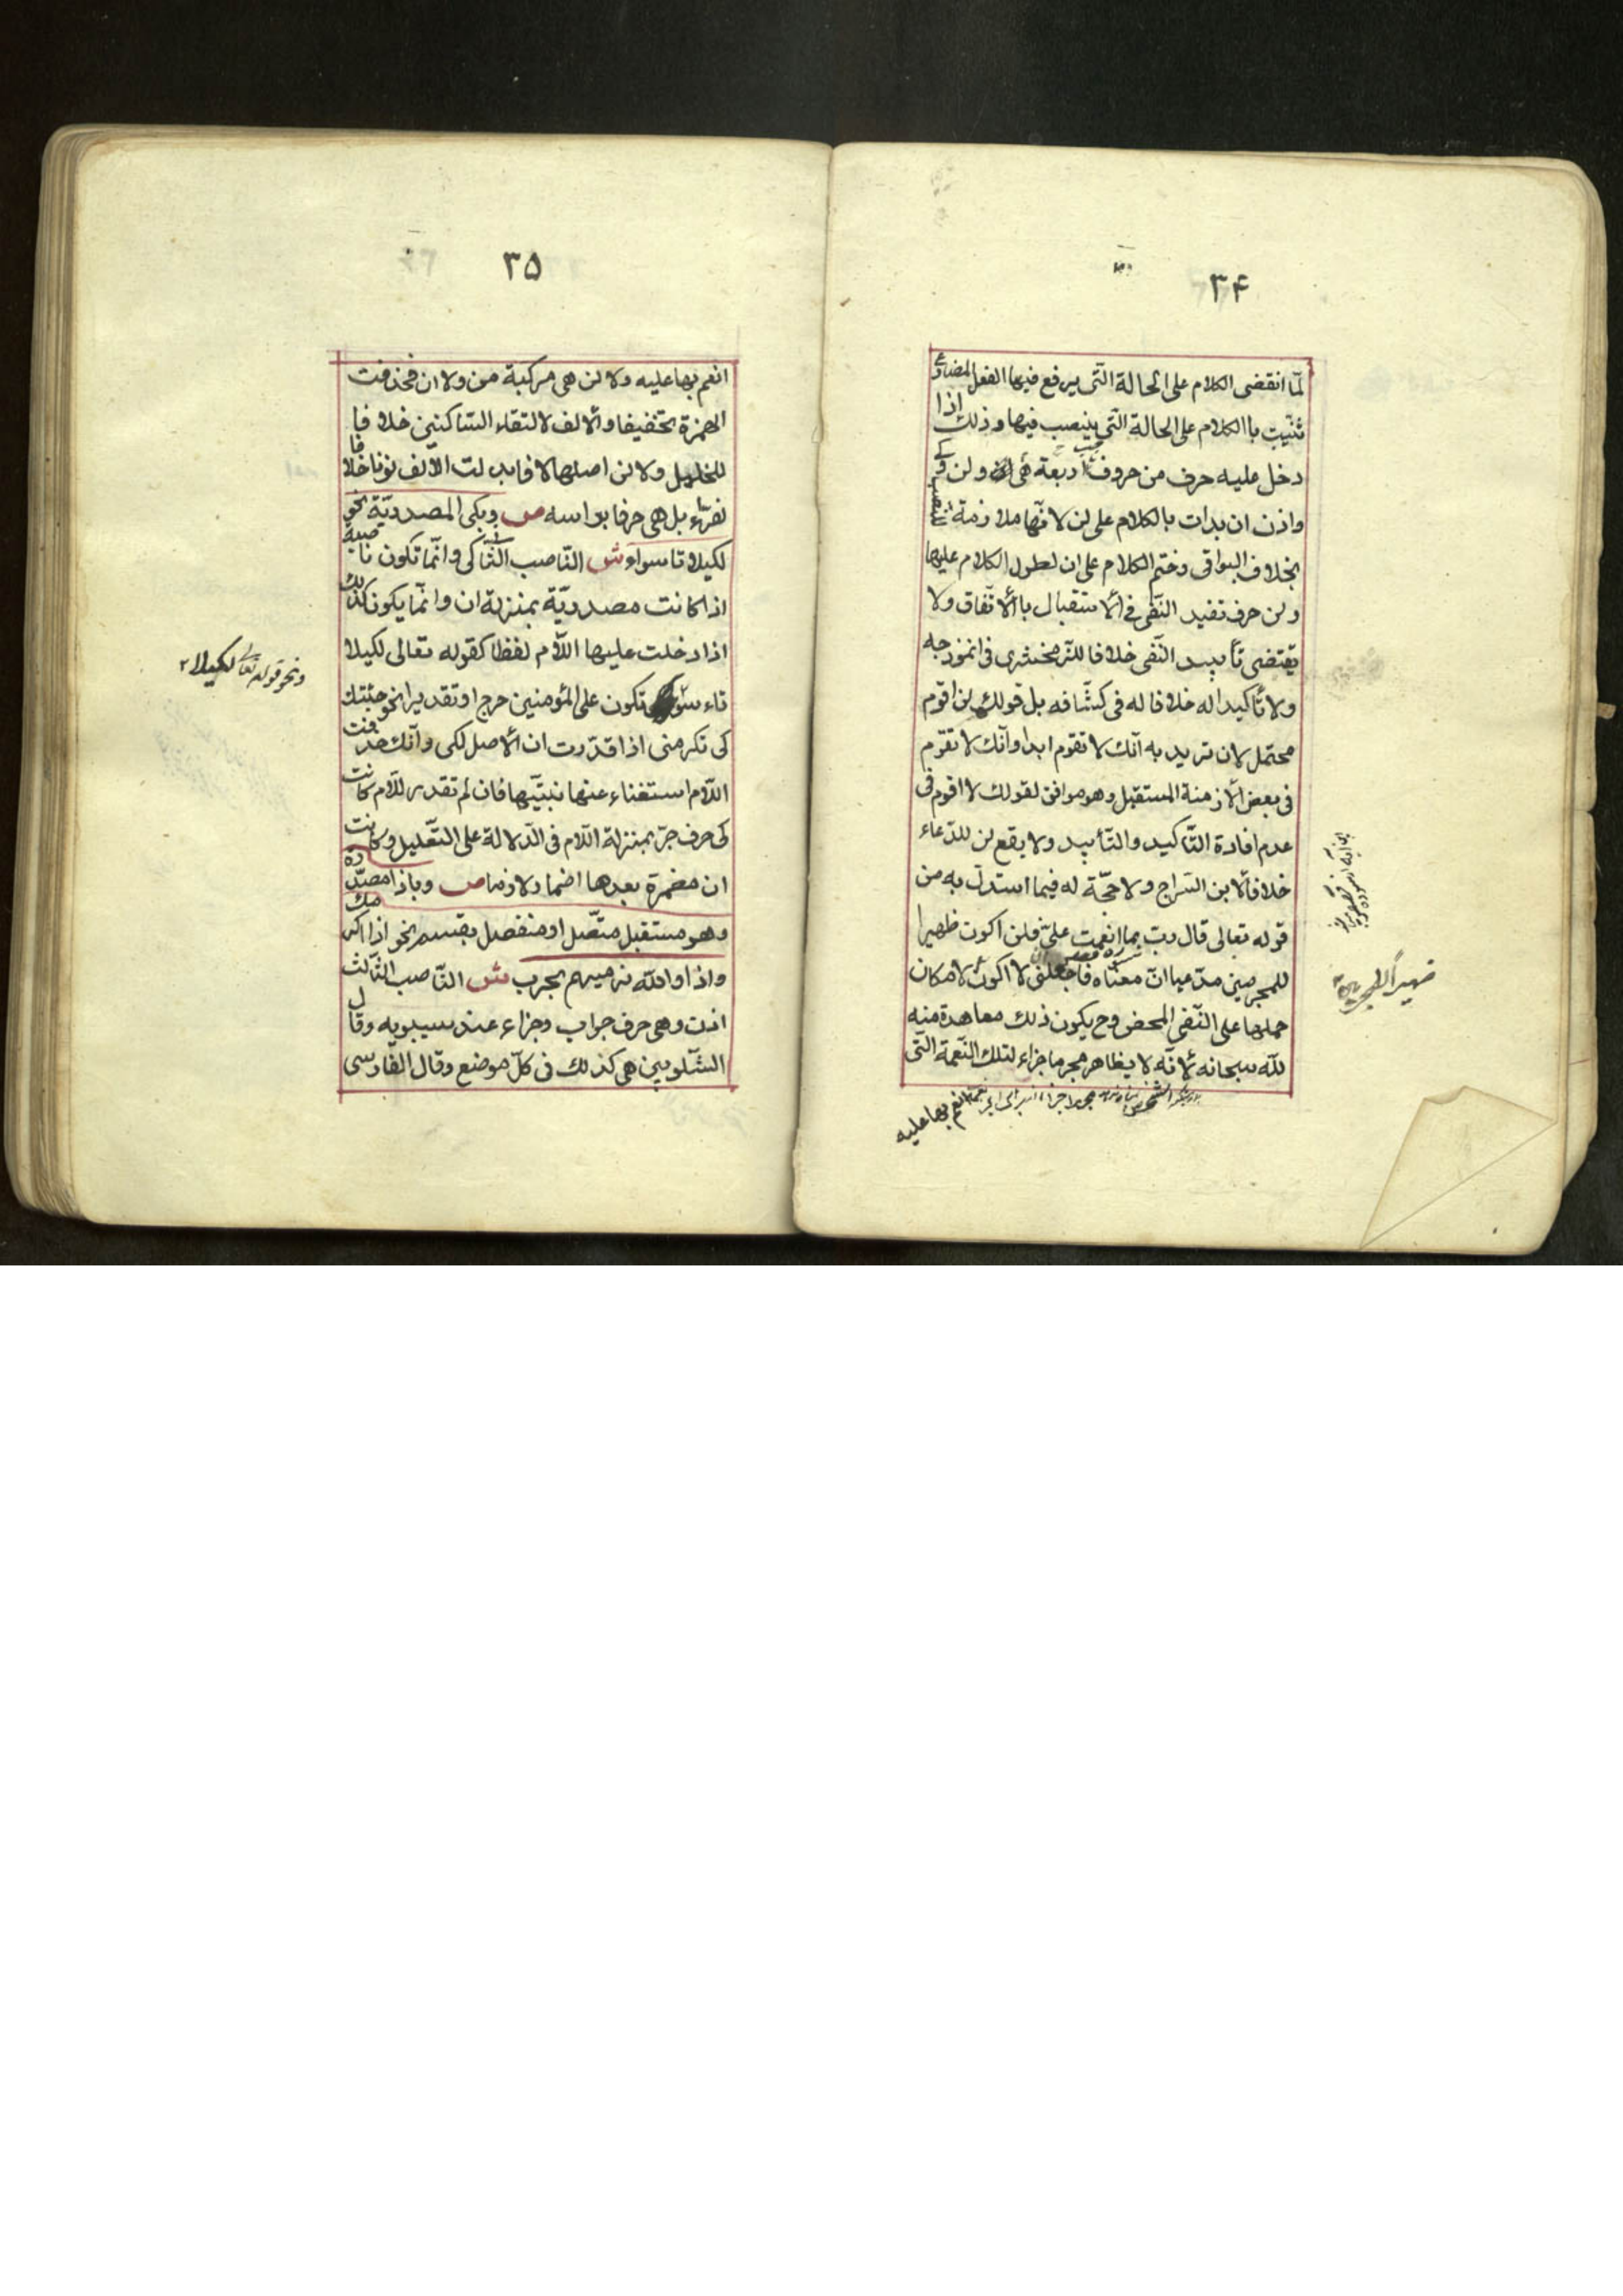 ۳۴
لمّا انقضى الكلام على الحالة الّتى يرفع فيها الفعل المضارع
ثنّيت باالكلام على الحالة الّتى ينصب فيها وذلك اذا
دخل عليه حرف من حروف اربعة هى ان ولن وكى
واذن ان بدات بالكلام على لن لانّها ملازمة للنصب
بخلاف البواقى وختم الكلام على ان لطول الكلام عليها
ولن حرف تفيد النّفى فى ألاستقبال باألاتّفاق ولا
يقتضى تأبيد النّفى خلافا للزّمخشرى فى انموذجه
ولا تأكيدا له خلافا له فى كشّافه بل قولك لن اقوم
محتمل لان تريد به انّك لا تقوم ابدا وانّك لا تقوم
فى بعض ألازمنة المستقبل وهو موافق لقولك لا اقوم فى
عدم افادة التّاكيد والتّأبيد ولا يقع لن للدّعاء
خلافا ألابن السّراج ولا حجّة له فيما استدلّ به من
قوله تعالى قال ربّ بما انعمت علىّ فلن اكون ظهيرا
للمجرمين مدّعيا انّ معناه فاجعلنى لا اكون لامكان
حملها على النّفى المحض وح يكون ذلك معاهدة منه
لله سبحانه لأنّه لا يظاهر مجرما جزاء لتلك النّعمة الّتى
انعم بها عليه
۳۵
انعم بها عليه ولا لن هى مركبة من ولا ان فحذفت
الهمزة تخفيفا وألالف لالتقاء السّاكنين خلافا
للخليل ولا لن اصلها لا فابدلت الألف نونا خلافا
لفرّاء بل هى حرفا براسه ص وبكى المصدريّة نحو
لكيلا تاسواء ش النّاصب الثّانى كى وانّما تكون ناصبة
اذا كانت مصدريّة بمنزلة ان وانّما يكون كذلك
اذا دخلت عليها اللّام لفظا كقوله تعالى لكيلا
تاءسوا تكون على المؤمنين حرج او تقديرا نحو جئتك
كى تكرمنى اذا قدّرت ان ألاصل لكى وانّك حذفت
اللّام استغناء عنها نبيّتها فان لم تقدر للّام كانت
كى حرف جرّ بمنزلة اللّام فى الدّلالة على التّعليل وكانت
ان مضمرة بعدها اضما ولازما ص وباذا مصدّرة
وهو مستقبل متّصل او منفصل بقسم نحو اذا اكرمك
واذا والله نرميهم بحرب ش النّاصب الثّالث
اذن وهى حرف جواب وجزاء عند سيبويه وقال
الشّلوبين هى كذلك فى كلّ موضع وقال الفارسى
ونحو قوله تعالى لكيلا